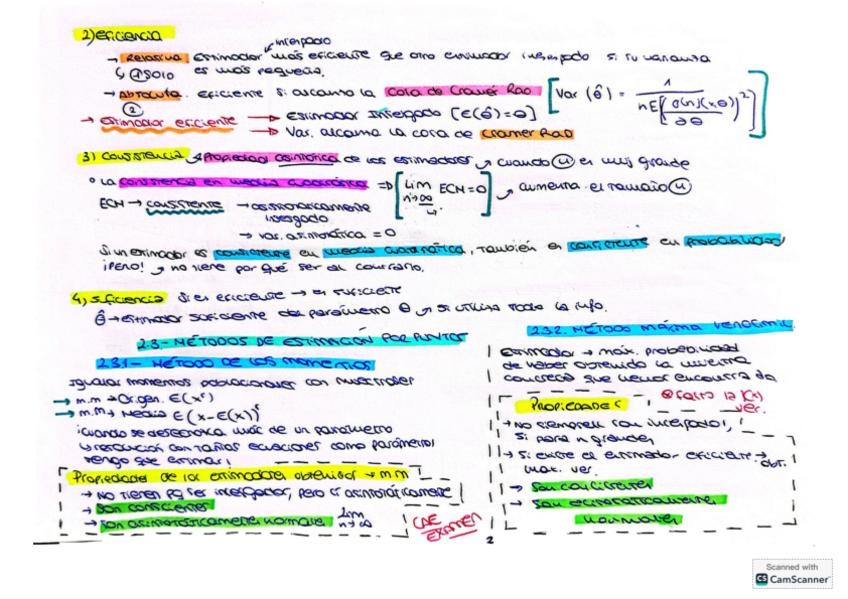 2) eficiencia
insesgado
→ Relativa estimador más eficiente que otro estimador insesgado si su varianza
↳ ① solo es más pequeña.
→ Absoluta. eficiente si alcanza la cota de Cramér Rao [Var (θ̂) = 1 / nE[(∂ln f(x,θ)/∂θ)²]]
②
→ estimador eficiente → Estimador Insesgado [E(θ̂)=θ]
→ Var. alcanza la cota de Cramer Rao
3) Consistencia → Propiedad asintótica de los estimadores → cuando (n) es muy grande
° La consistencia en media cuadrática => [lim n→∞ ECM=0] → aumenta el tamaño (n)
ECM → consistente → asintóticamente
insesgado
→ var. asintótica = 0
Si un estimador es consistente en media cuadrática, también es consistente en probabilidad!
¡PERO! → no tiene por qué ser al contrario.
4) Suficiencia Si es eficiente → es suficiente
θ̂ → estimador suficiente del parámetro θ → si utiliza toda la info.
2.3.- MÉTODOS DE ESTIMACIÓN POR PUNTOS
2.3.1 - MÉTODO DE LOS MOMENTOS
Igualar momentos poblacionales con muestrales
→ m.m → Origen. E(xʳ)
→ m.m → Media E(x-E(x))ʳ
¡Cuando se desconozca más de un parámetro
↳ resolución con tantas ecuaciones como parámetros
tengo que estimar!
Propiedades de los estimadores obtenidos → m.m
→ NO tienen pq ser insesgados, pero sí asintóticamente
→ Son consistentes
→ Son asintóticamente normales lim n→∞
CAE
EXAMEN
2.3.2. MÉTODO MÁXIMA VEROSIMIL.
Estimador → máx. probabilidad
de haber obtenido la muestra
concreta que hemos encontrado
ver.
PROPIEDADES
→ No siempre son insesgados!,
sí para n grandes
→ Si existe el estimador eficiente → obt.
max. ver.
→ Son consistentes
→ Son asintóticamente
normales
2
Scanned with
CS CamScanner